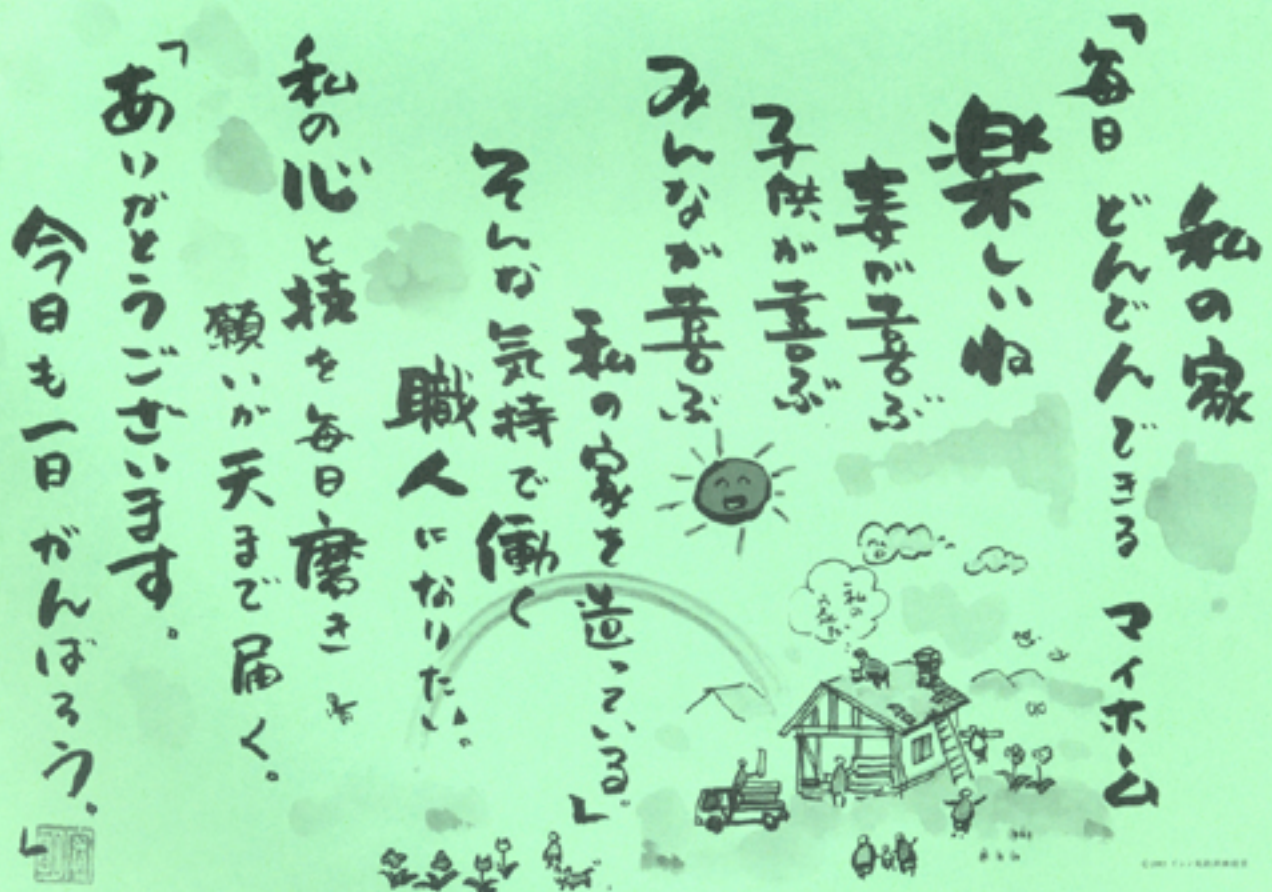 私の家
「毎日 どんどんできる マイホーム
楽しいね
妻が喜ぶ
子供が喜ぶ
みんなが喜ぶ
私の家を造っている。」
そんな気持で働く
職人になりたい。
私の心と技を毎日磨き
願いが天まで届く。
「ありがとうございます。
今日も一日がんばろう。」